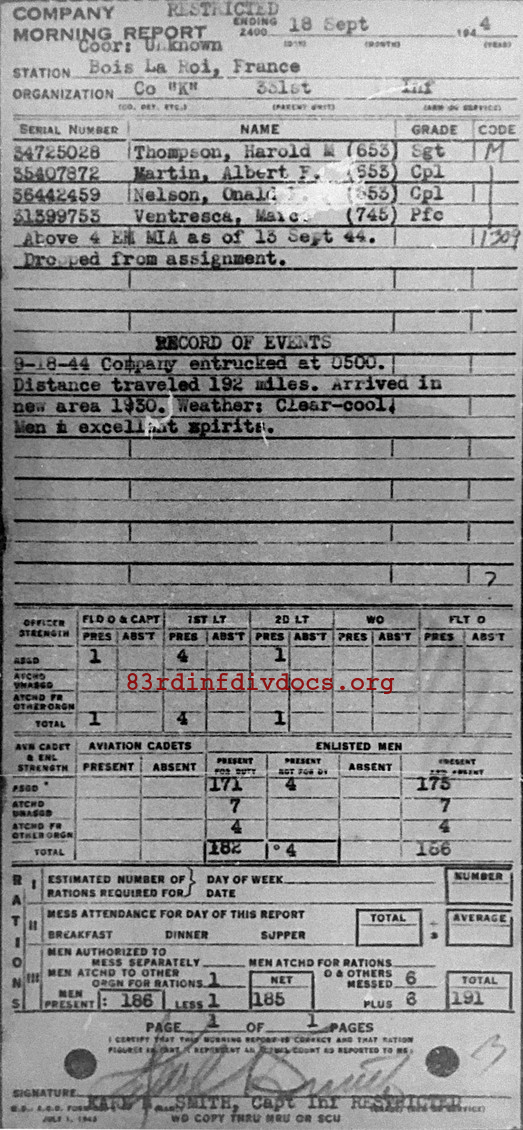 RESTRICTED
COMPANY
MORNING REPORT
ENDING 2400 18 Sept 194 4
(DAY) (MONTH) (YEAR)
Coor: Unknown
STATION Bois La Roi, France
ORGANIZATION Co "K" 331st Inf
(CO. DET. ETC.) (PARENT UNIT) (ARM OR SERVICE)
SERIAL NUMBER NAME GRADE CODE
34725028 Thompson, Harold M (653) Sgt M
35407872 Martin, Albert F. (653) Cpl
36442459 Nelson, Onald (653) Cpl
31399753 Ventresca, (745) Pfc
Above 4 EM MIA as of 13 Sept 44. 1309
Dropped from assignment.
RECORD OF EVENTS
9-18-44 Company entrucked at 0500.
Distance traveled 192 miles. Arrived in
new area 1930. Weather: Clear-cool.
Men in excellent spirits.
?
OFFICER STRENGTH FLD O & CAPT 1ST LT 2D LT WO FLT O
PRES ABS'T PRES ABS'T PRES ABS'T PRES ABS'T PRES ABS'T
ASGD 1 4 1
ATCHD UNASGD
83rdinfdivdocs.org
ATCHD FR OTHER ORGN
TOTAL 1 4 1
AVN CADET & ENL STRENGTH AVIATION CADETS ENLISTED MEN
PRESENT ABSENT PRESENT FOR DUTY PRESENT NOT FOR DY ABSENT PRESENT AND ABSENT
ASGD 171 4 175
ATCHD UNASGD 7 7
ATCHD FR OTHER ORGN 4 4
TOTAL 182 4 186
RATIONS
I ESTIMATED NUMBER OF RATIONS REQUIRED FOR } DAY OF WEEK DATE NUMBER
II MESS ATTENDANCE FOR DAY OF THIS REPORT TOTAL ÷ 3 AVERAGE
BREAKFAST DINNER SUPPER
III MEN AUTHORIZED TO MESS SEPARATELY MEN ATCHD FOR RATIONS
MEN ATCHD TO OTHER ORGN FOR RATIONS 1 NET O & OTHERS MESSED 6 TOTAL
MEN PRESENT: 186 LESS 1 185 PLUS 6 191
PAGE 1 OF 1 PAGES
I CERTIFY THAT THIS MORNING REPORT IS CORRECT AND THAT RATION
FIGURES IN PART I REPRESENT COUNT AS REPORTED TO ME:
3
SIGNATURE
SMITH, Capt Inf RESTRICTED
W.D., A.G.O. FORM
JULY 1, 1943
WD COPY THRU MRU OR SCU